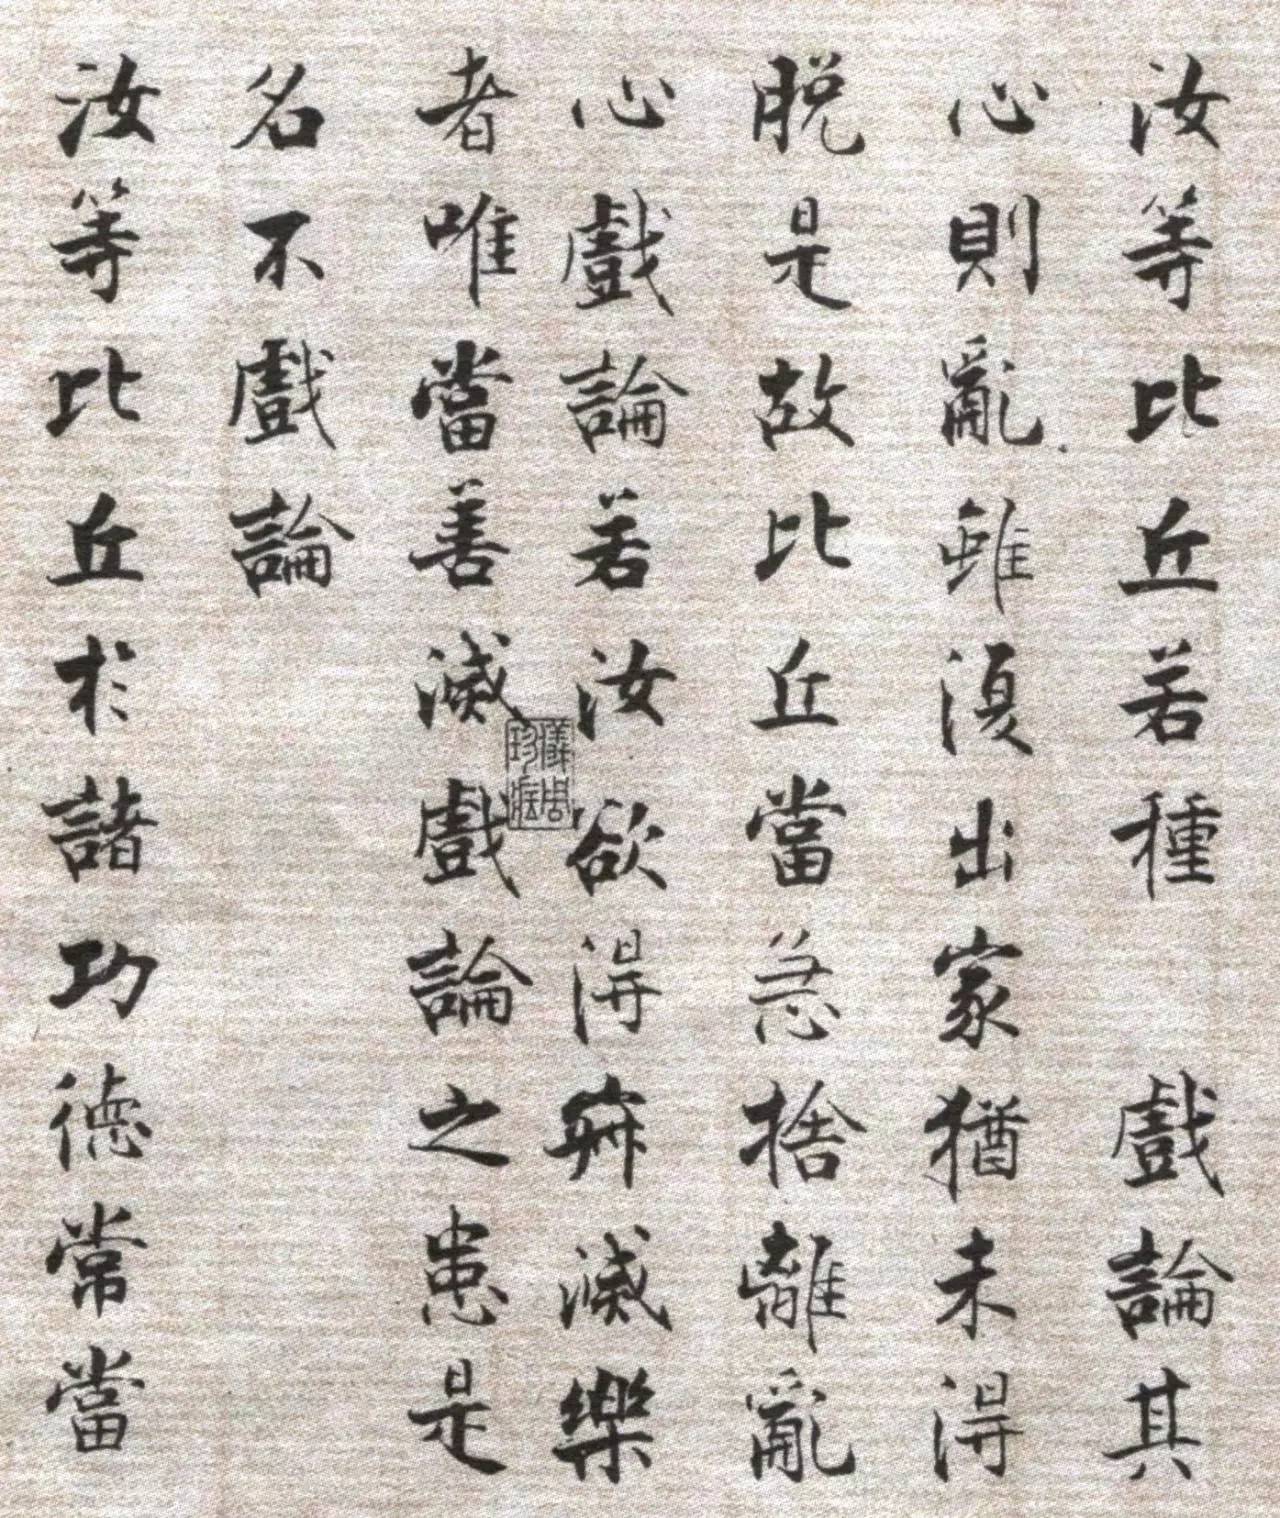 汝等比丘若種戲論其
心則亂雖復出家猶未得
脱是故比丘當急捨離亂
心戲論若汝欲得寂滅樂
者唯當善滅戲論之患是
名不戲論
汝等比丘於諸功德常當